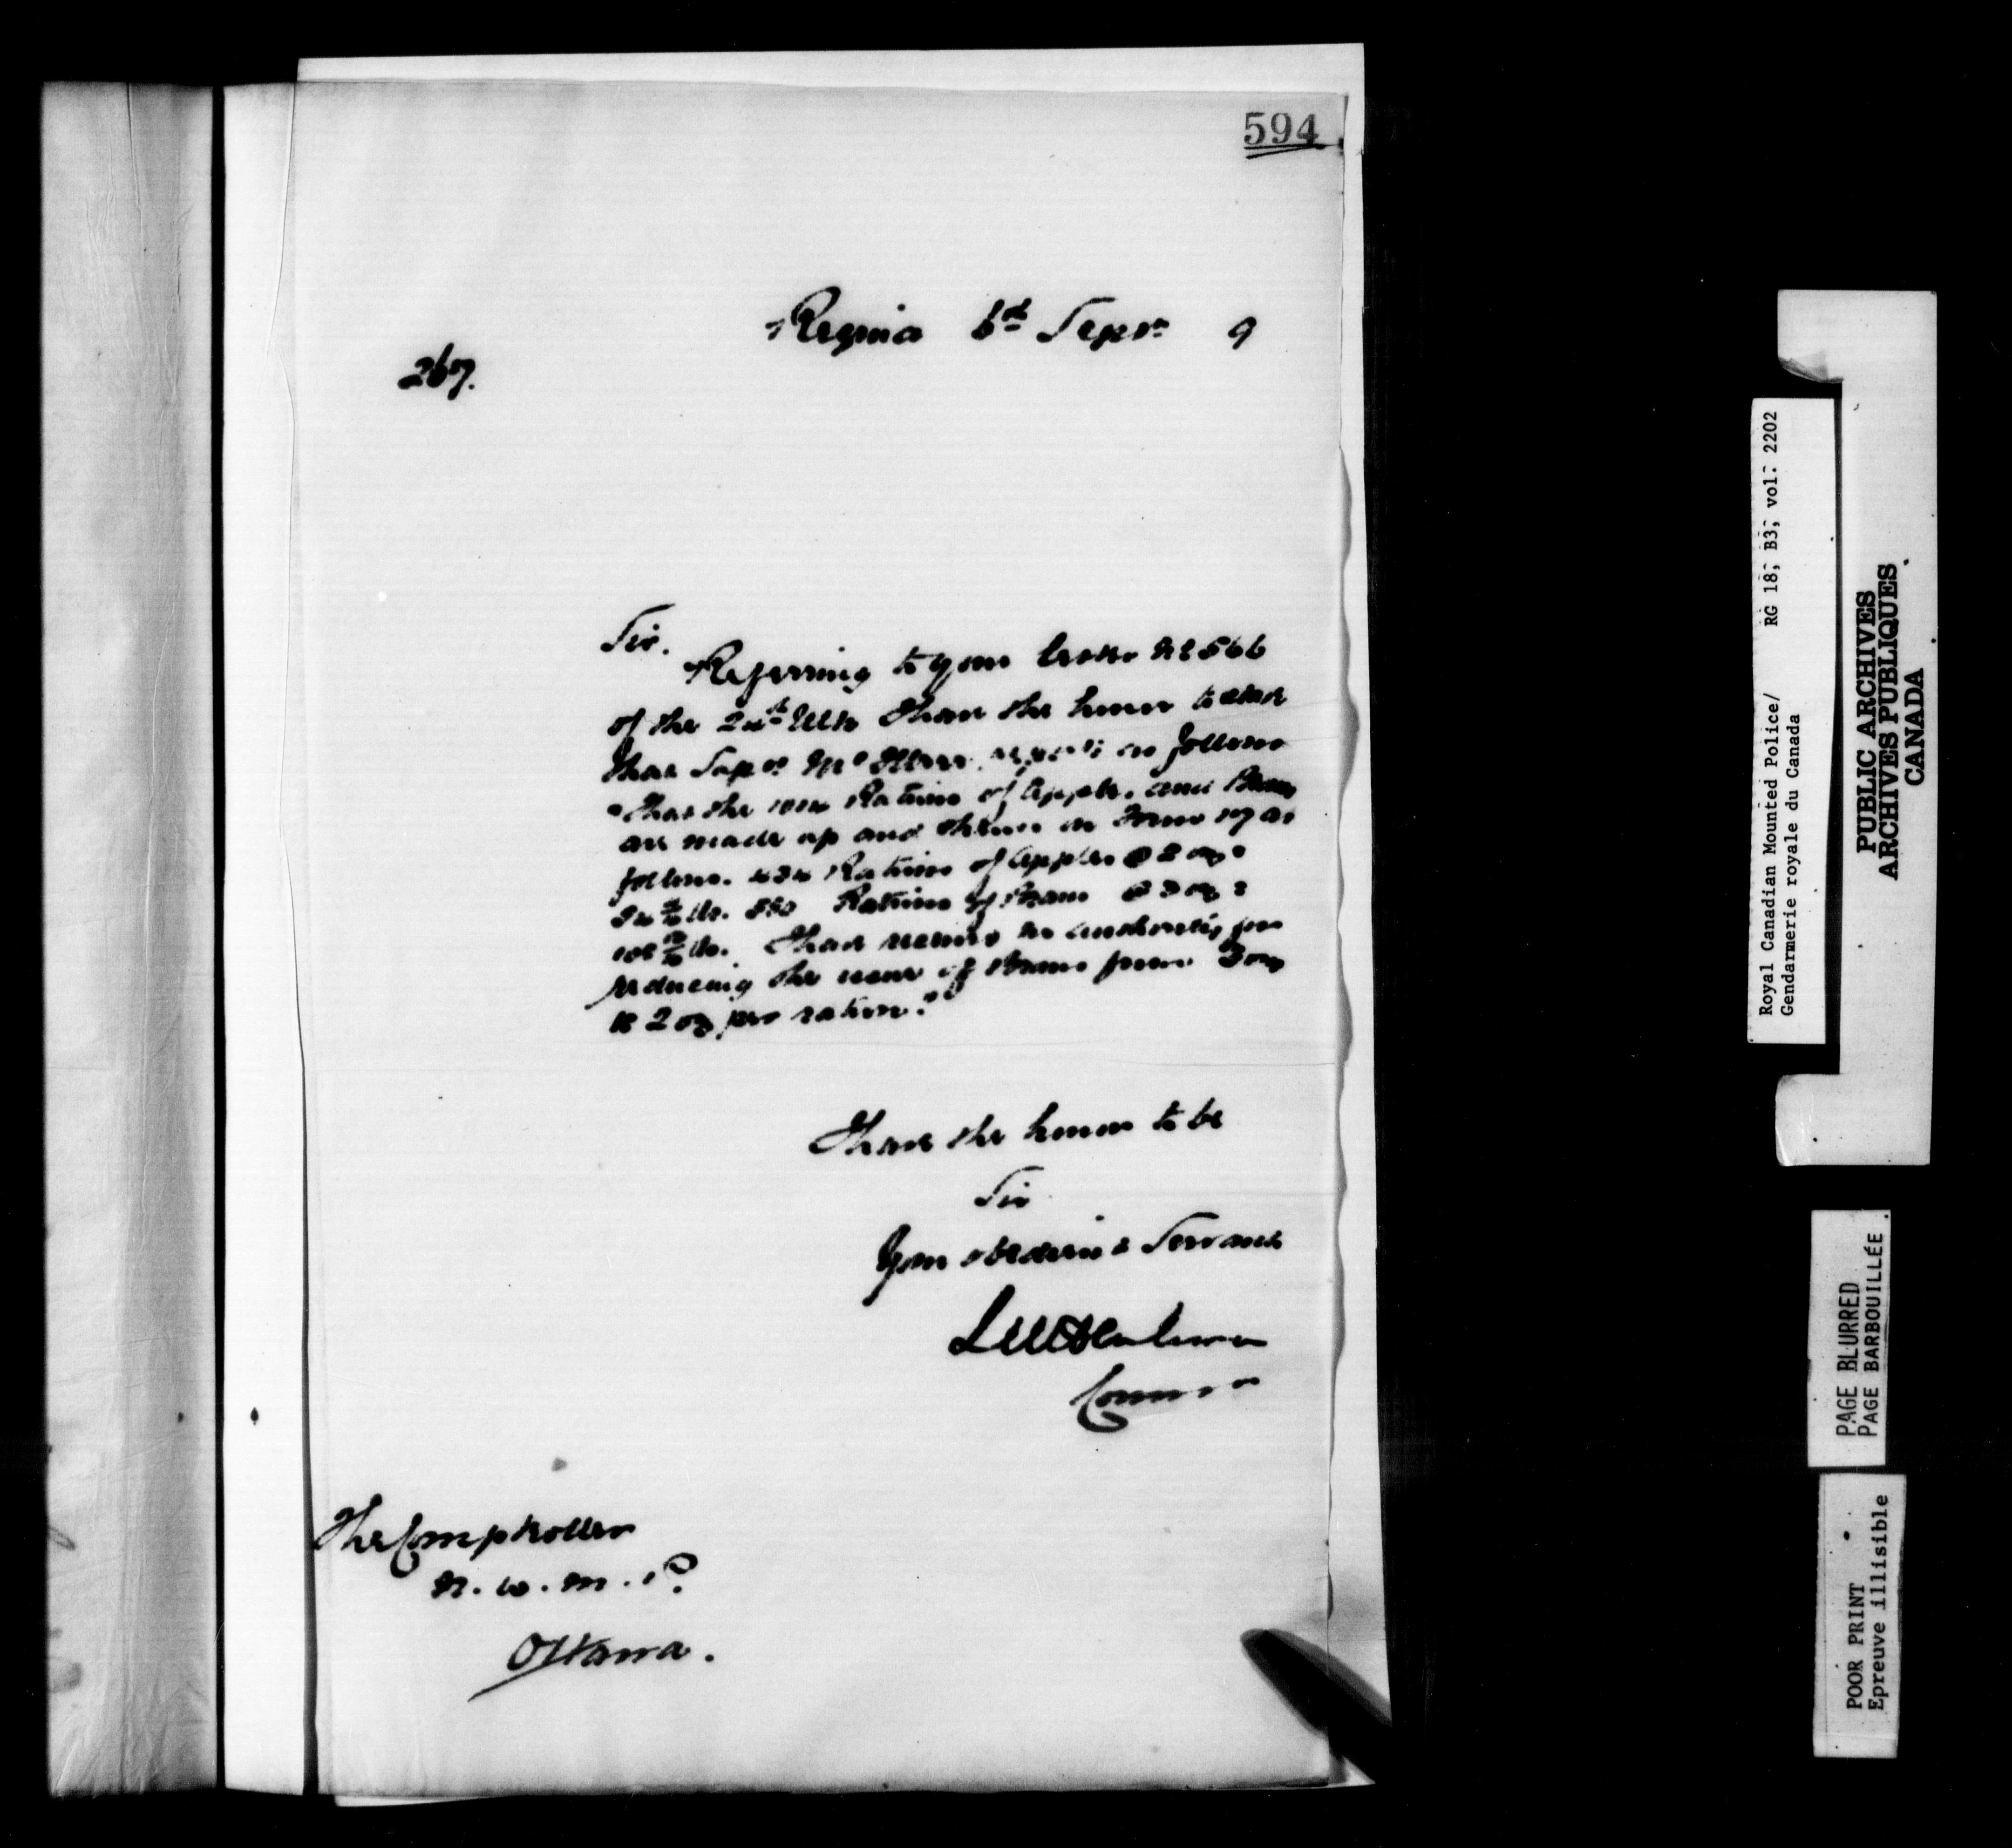 594
Regina 6th Sepr. 9
267.
Sir.
Referring to your letter No 2566
of the 24th Ulto I have the honor to state
that Supt. McIllree reports as follows
"that the 1014 Rations of Apples and Beans
are made up and shewn on Form 17 as
follows. 434 Rations of Apples @ 2 oz =
54 4/16 lbs. 580 Rations of Beans @ 3 oz =
108 12/16 lbs. I had received no authority for
reducing the issue of Beans from 3 oz
to 2 oz per ration."
I have the honor to be
Sir
Your obedient Servant
L W Herchmer
Commr
The Comptroller
N. W. M. P.
Ottawa.
Royal Canadian Mounted Police/ RG 18, B3, vol. 2202
Gendarmerie royale du Canada
PUBLIC ARCHIVES
ARCHIVES PUBLIQUES
CANADA
PAGE BLURRED
PAGE BARBOUILLÉE
POOR PRINT
Epreuve illisible